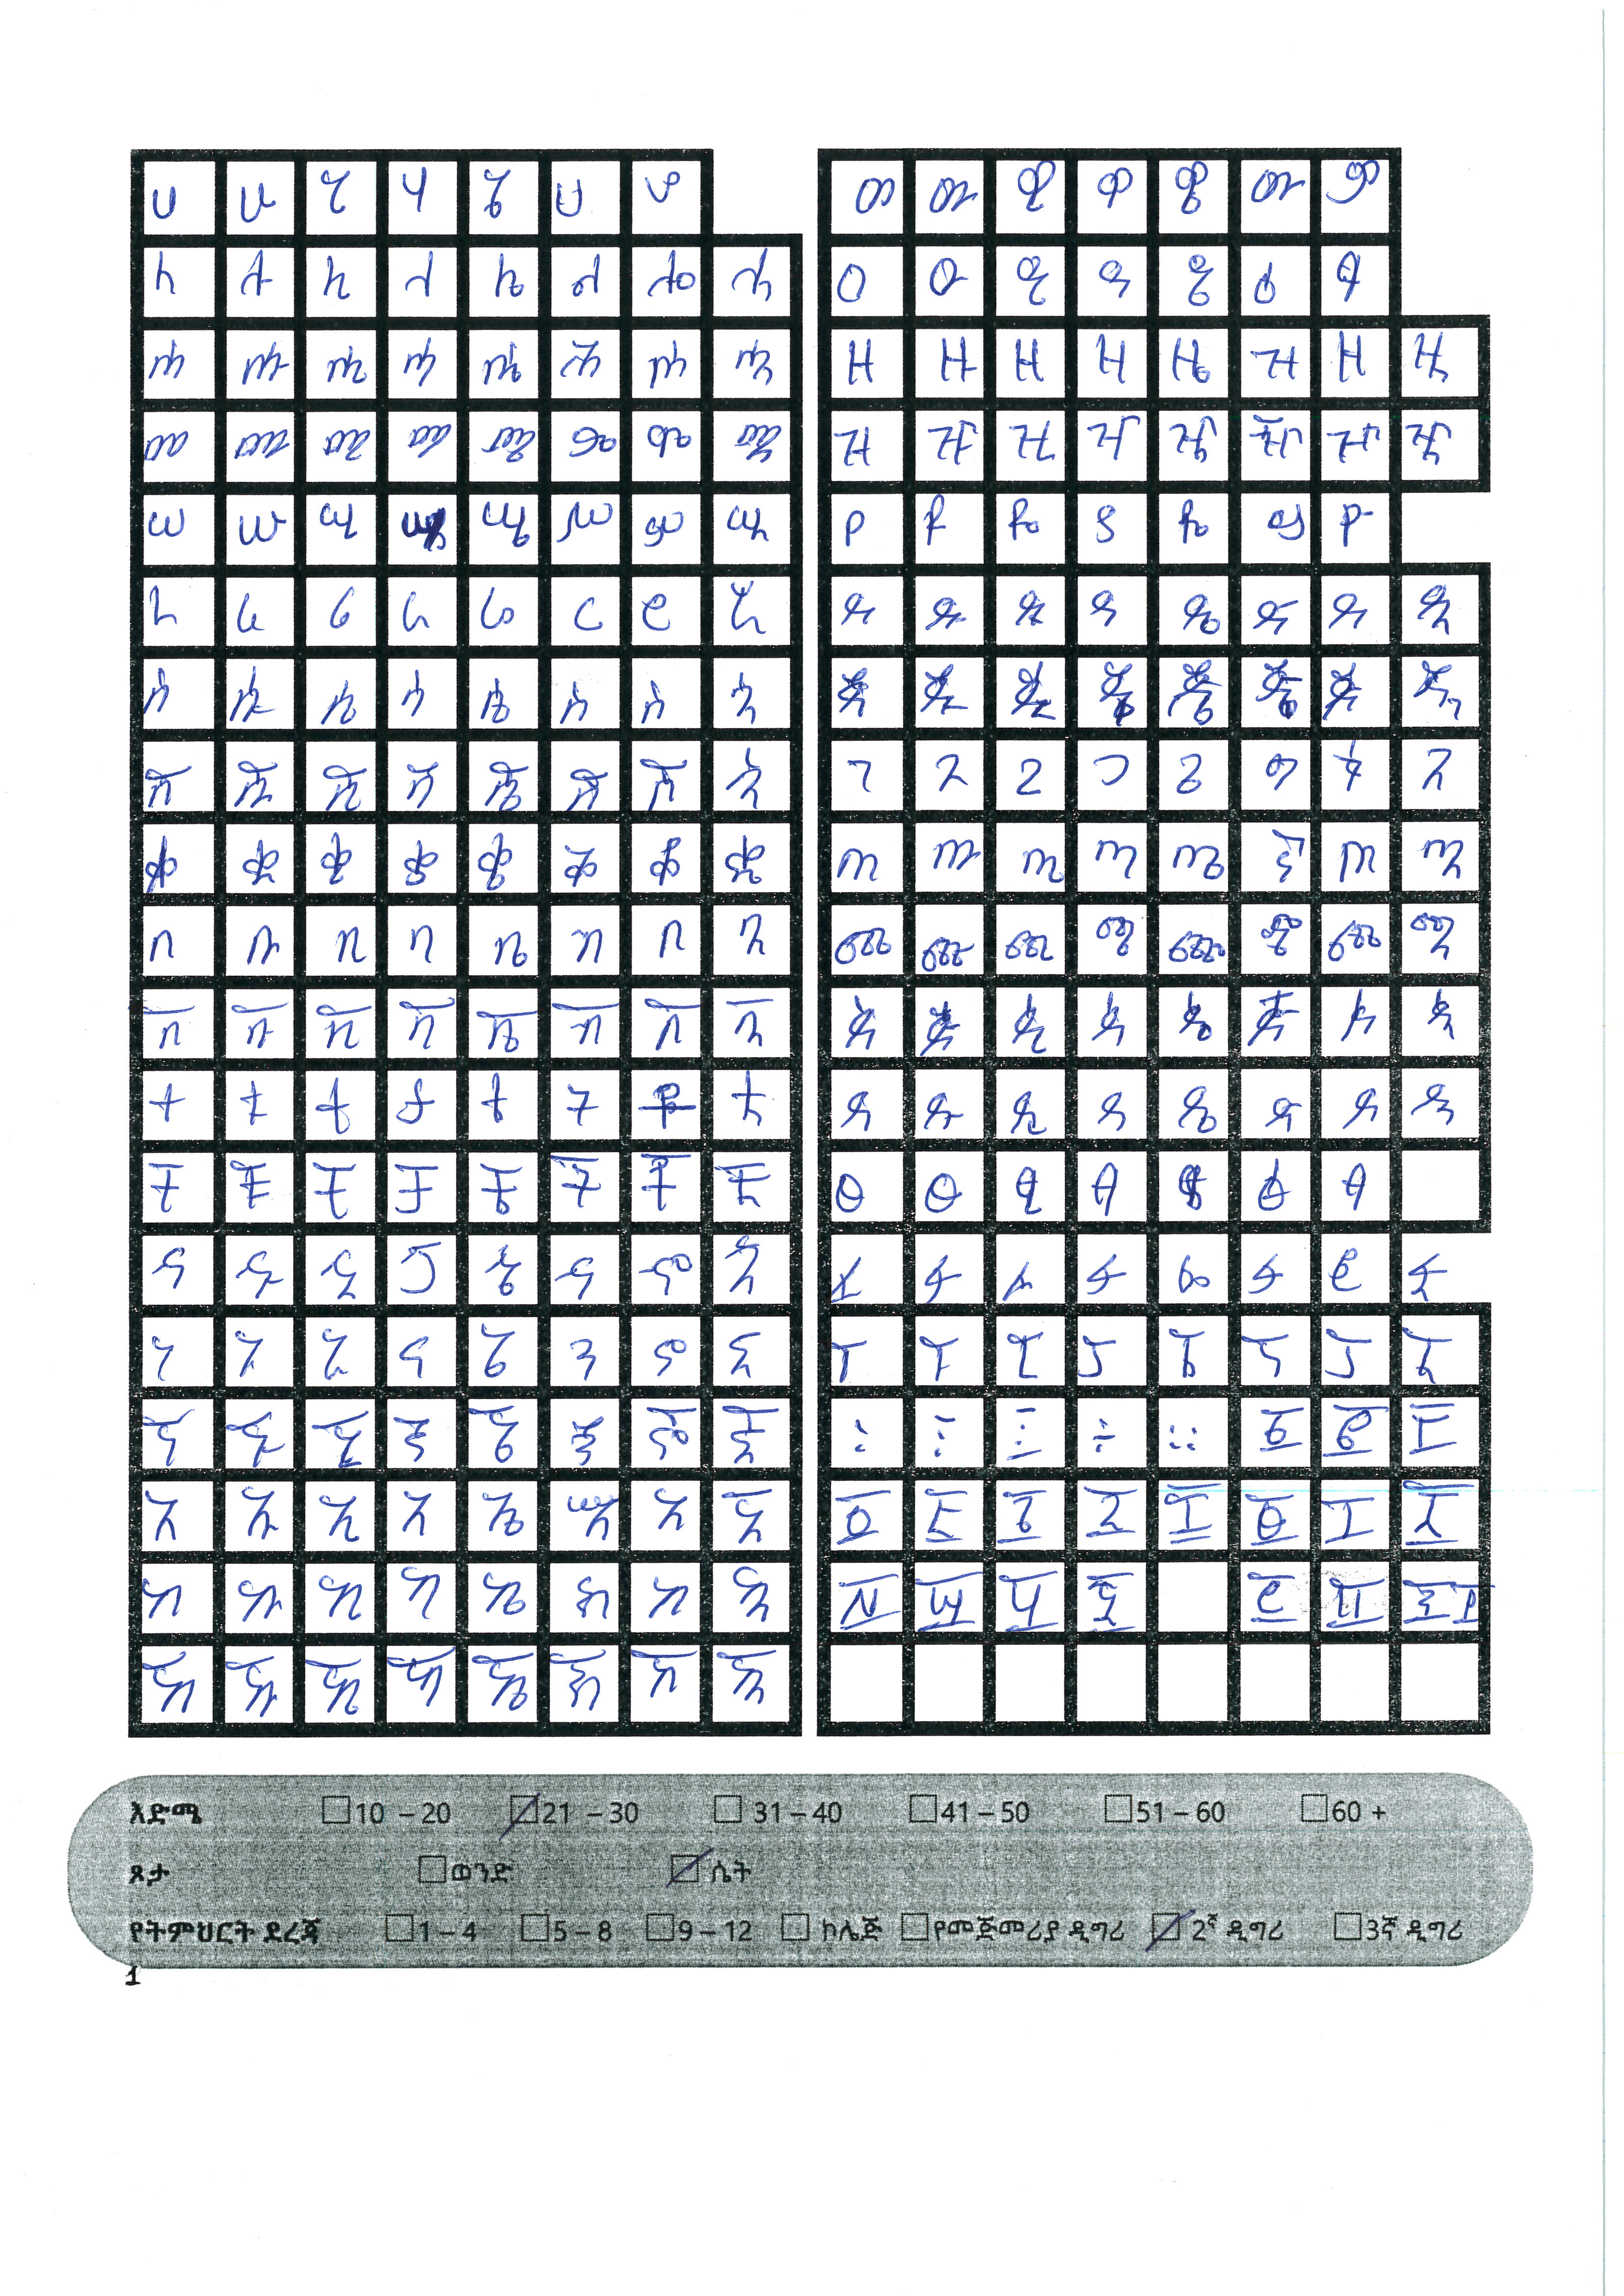 ሀ ሁ ሂ ሃ ሄ ህ ሆ
ለ ሉ ሊ ላ ሌ ል ሎ ሏ
ሐ ሑ ሒ ሓ ሔ ሕ ሖ ሗ
መ ሙ ሚ ማ ሜ ም ሞ ሟ
ሠ ሡ ሢ ሣ ሤ ሥ ሦ ሧ
ረ ሩ ሪ ራ ሬ ር ሮ ሯ
ሰ ሱ ሲ ሳ ሴ ስ ሶ ሷ
ሸ ሹ ሺ ሻ ሼ ሽ ሾ ሿ
ቀ ቁ ቂ ቃ ቄ ቅ ቆ ቋ
በ ቡ ቢ ባ ቤ ብ ቦ ቧ
ቨ ቩ ቪ ቫ ቬ ቭ ቮ ቯ
ተ ቱ ቲ ታ ቴ ት ቶ ቷ
ቸ ቹ ቺ ቻ ቼ ች ቾ ቿ
ኀ ኁ ኂ ኃ ኄ ኅ ኆ ኋ
ነ ኑ ኒ ና ኔ ን ኖ ኗ
ኘ ኙ ኚ ኛ ኜ ኝ ኞ ኟ
አ ኡ ኢ ኣ ኤ እ ኦ ኧ
ከ ኩ ኪ ካ ኬ ክ ኮ ኳ
ኸ ኹ ኺ ኻ ኼ ኽ ኾ ዃ
ወ ዉ ዊ ዋ ዌ ው ዎ
ዐ ዑ ዒ ዓ ዔ ዕ ዖ
ዘ ዙ ዚ ዛ ዜ ዝ ዞ ዟ
ዠ ዡ ዢ ዣ ዤ ዥ ዦ ዧ
የ ዩ ዪ ያ ዬ ይ ዮ
ደ ዱ ዲ ዳ ዴ ድ ዶ ዷ
ጀ ጁ ጂ ጃ ጄ ጅ ጆ ጇ
ገ ጉ ጊ ጋ ጌ ግ ጎ ጓ
ጠ ጡ ጢ ጣ ጤ ጥ ጦ ጧ
ጨ ጩ ጪ ጫ ጬ ጭ ጮ ጯ
ጰ ጱ ጲ ጳ ጴ ጵ ጶ ጷ
ጸ ጹ ጺ ጻ ጼ ጽ ጾ ጿ
ፀ ፁ ፂ ፃ ፄ ፅ ፆ
ፈ ፉ ፊ ፋ ፌ ፍ ፎ ፏ
ፐ ፑ ፒ ፓ ፔ ፕ ፖ ፗ
÷ ። ፩ ፪ ፫
፬ ፭ ፮ ፯ ፰ ፱ ፲ ፳
፴ ፵ ፶ ፷ ፺ ፻ ፼
እድሜ 10 – 20 21 – 30 31 – 40 41 – 50 51 – 60 60 +
ጾታ ወንድ ሴት
የትምህርት ደረጃ 1 – 4 5 – 8 9 – 12 ኮሌጅ የመጀመሪያ ዲግሪ 2ኛ ዲግሪ 3ኛ ዲግሪ
1